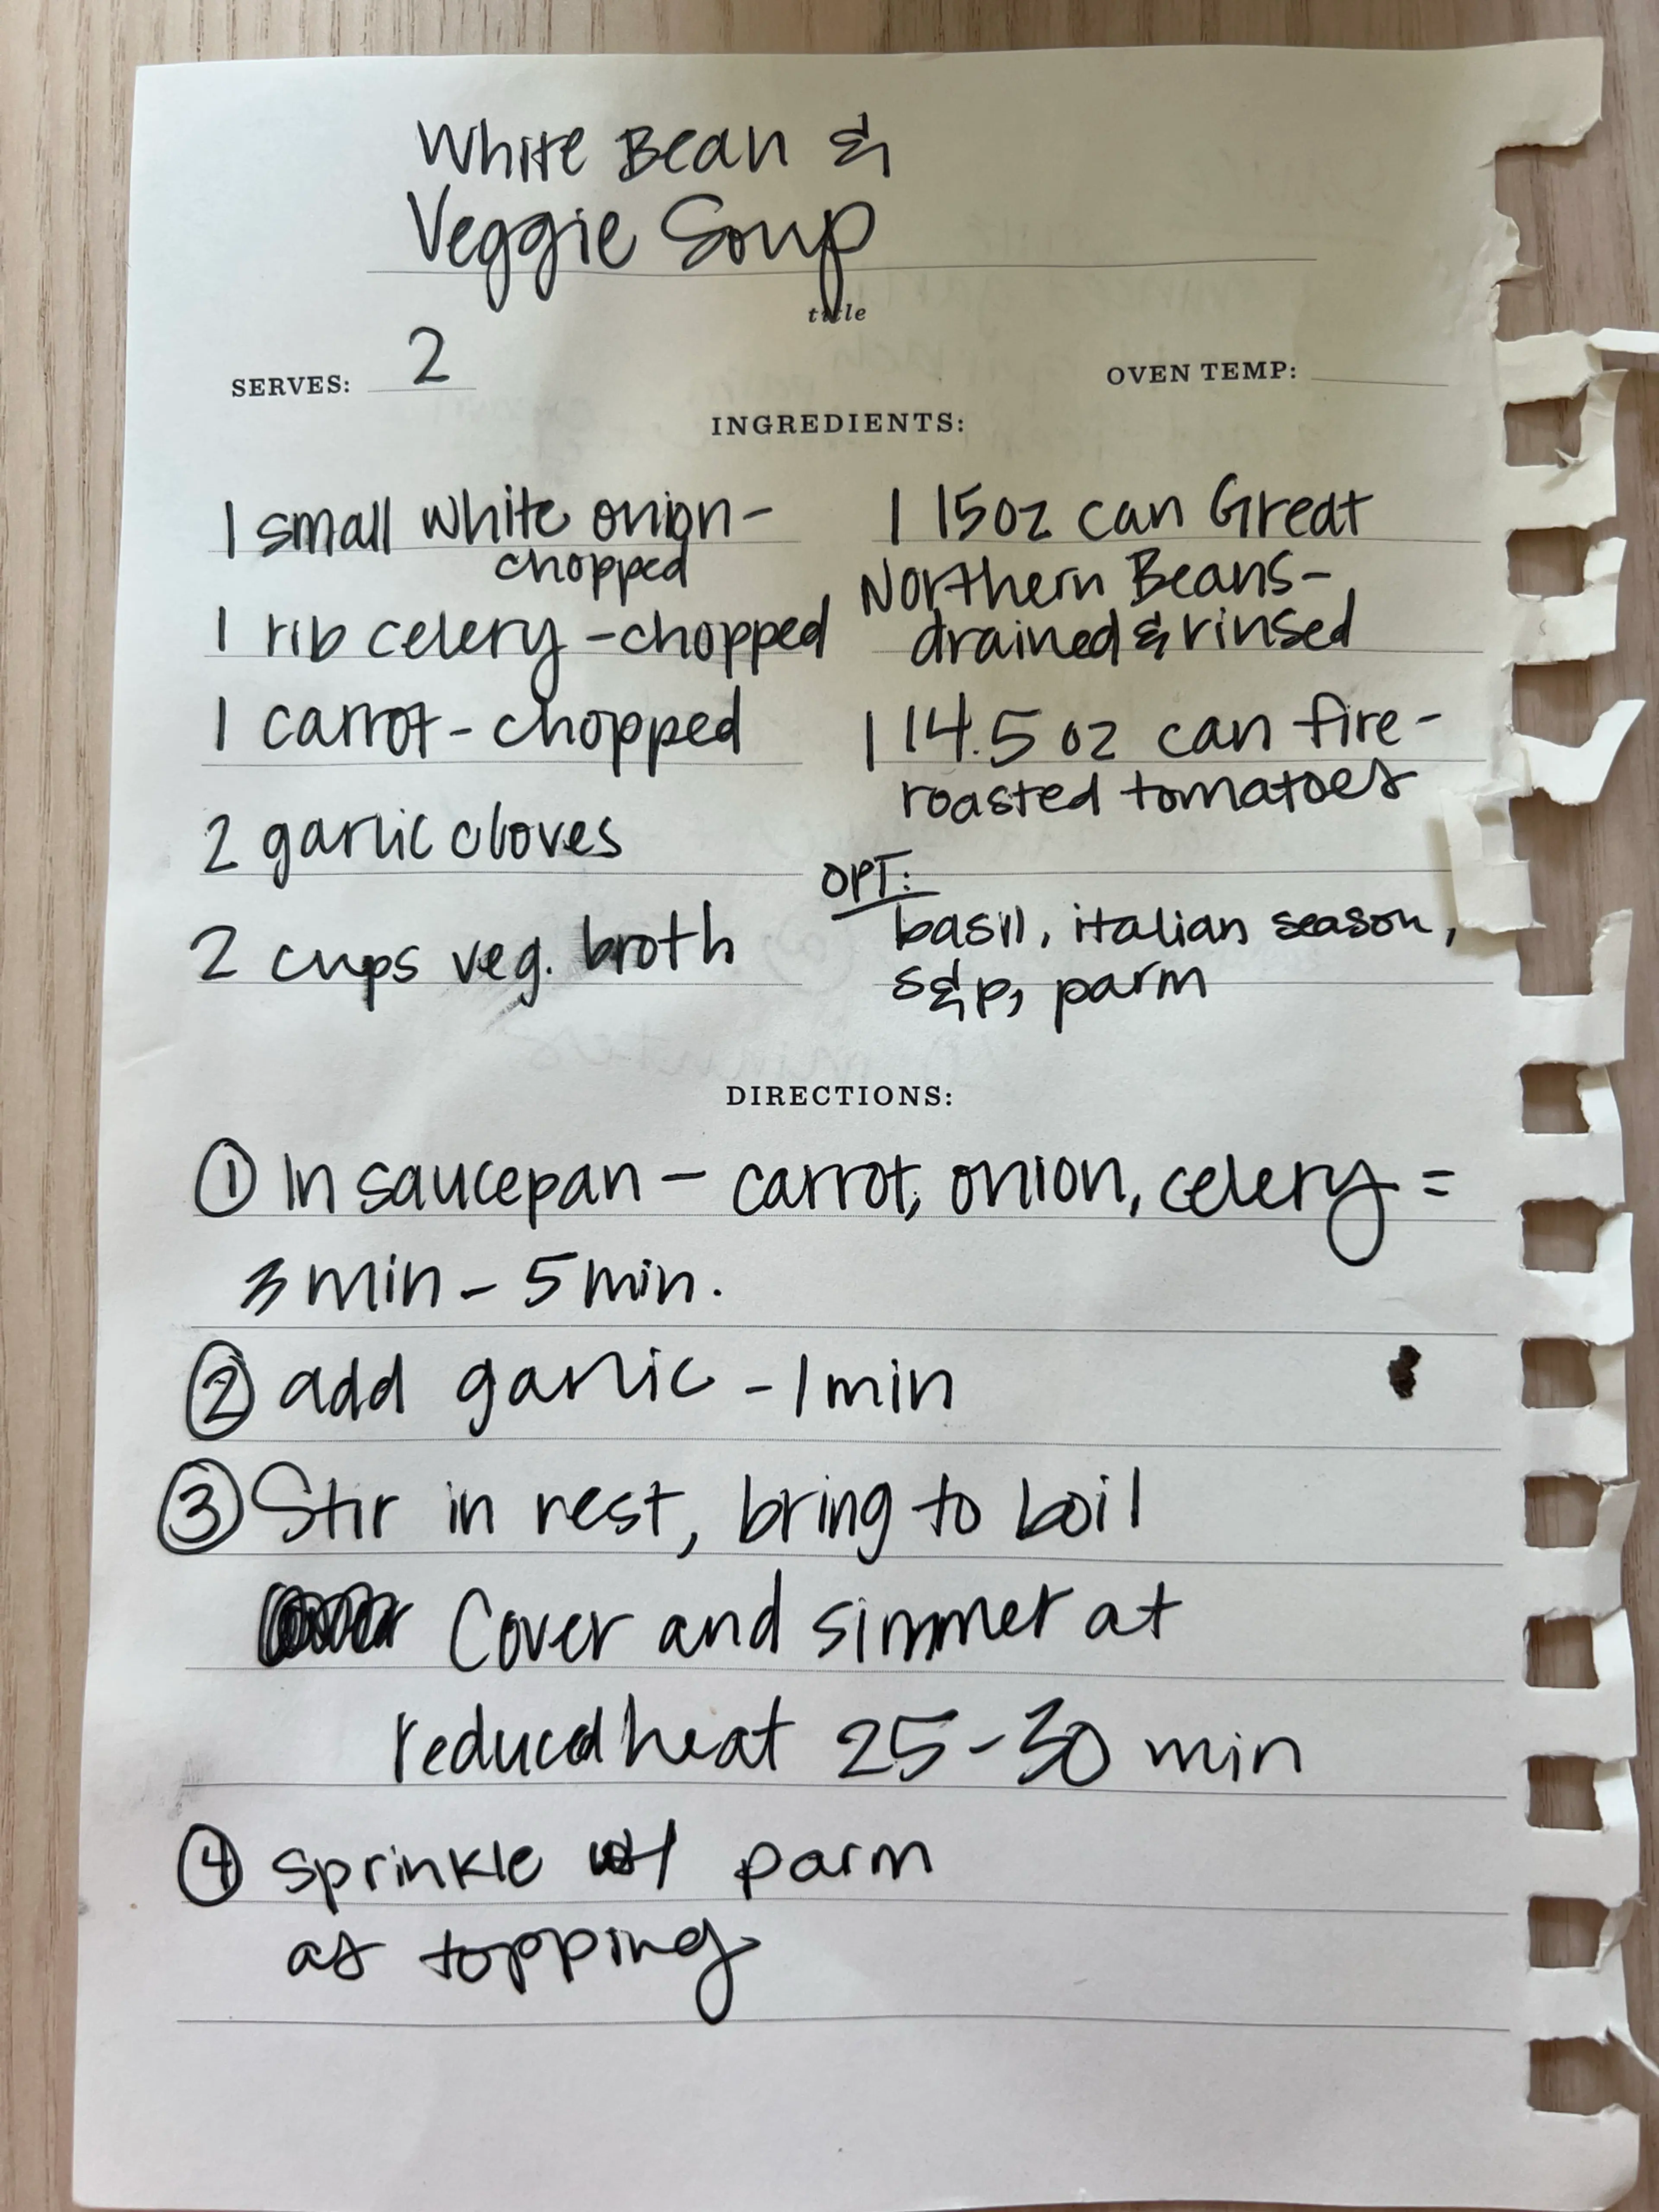 White Bean &
Veggie Soup
title
SERVES: 2
OVEN TEMP:
INGREDIENTS:
1 small white onion-
chopped
1 rib celery - chopped
1 carrot - chopped
2 garlic cloves
2 cups veg. broth
1 15oz can Great
Northern Beans-
drained & rinsed
1 14.5 oz can fire-
roasted tomatoes
OPT:
basil, italian season,
s&p, parm
DIRECTIONS:
① In saucepan - carrot, onion, celery =
3 min - 5 min.
② add garlic - 1 min
③ Stir in rest, bring to boil
Cover and simmer at
reduced heat 25-30 min
④ sprinkle w/ parm
as topping